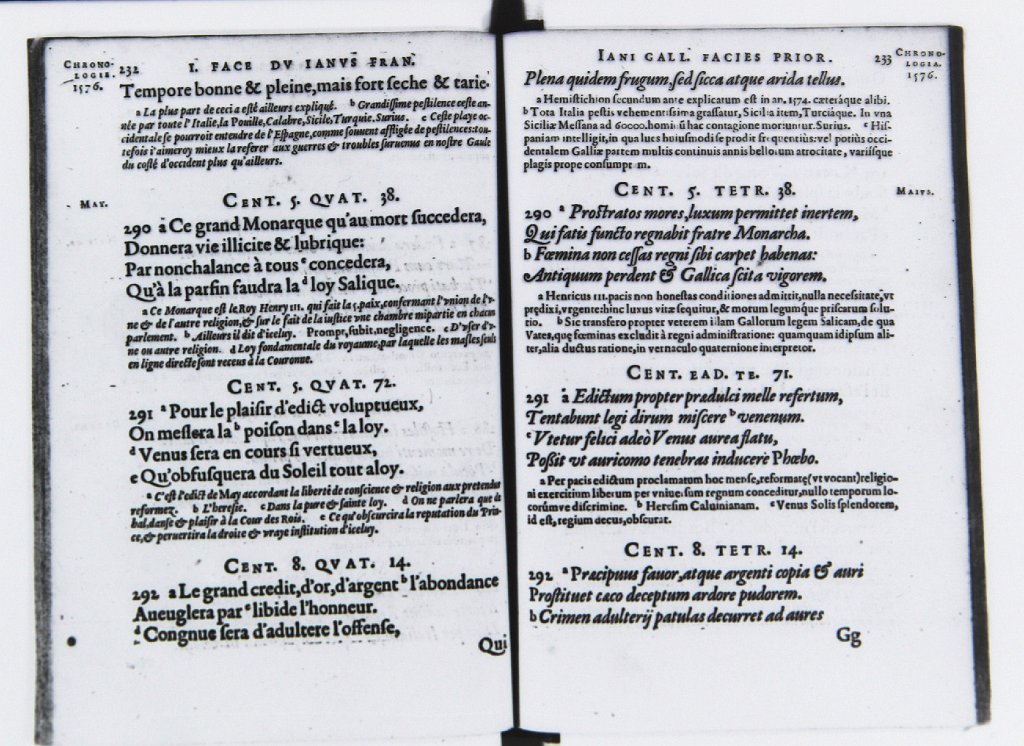 CHRONO-
LOGIE.
1576.
232
I. FACE DV IANVS FRAN.
Tempore bonne & pleine, mais fort seche & tarie.
a La plus part de ceci a esté ailleurs expliqué. b Grandissime pestilence ceste an-
née par toute l'Italie, la Pouille, Calabre, Sicile, Turquie. Surius. c Ceste playe oc-
cidentale se pourroit entendre de l'Espagne, comme souuent affligée de pestilences: tou-
tefois i'aimeroy mieux la referer aux guerres & troubles suruenus en nostre Gaule
du costé d'occident plus qu'ailleurs.
MAY.
CENT. 5. QVAT. 38.
290 a Ce grand Monarque qu'au mort succedera,
Donnera vie illicite & lubrique:
Par nonchalance à tous c concedera,
Qu'à la parfin faudra la d loy Salique.
a Ce Monarque est le Roy Henry III. qui fait la 5. paix, confermant l'vnion de l'v-
ne & de l'autre religion, & sur le fait de la iustice vne chambre mipartie en chacun
parlement. b Ailleurs il dit d'iceluy. Prompt, subit, negligence. c D'vser d'v-
ne ou autre religion. d Loy fondamentale du royaume, par laquelle les masles seuls
en ligne directe sont receus à la Couronne.
CENT. 5. QVAT. 72.
291 a Pour le plaisir d'edict voluptueux,
On meslera la b poison dans c la loy.
d Venus sera en cours si vertueux,
e Qu'obfusquera du Soleil tout aloy.
a C'est l'edict de May accordant la liberté de conscience & religion aux pretendus
reformez. b L'heresie. c Dans la pure & sainte loy. d On ne parlera que de
bal, danse & plaisir à la Cour des Rois. e Ce qu'obscurcira la reputation du Prin-
ce, & peruertira la droite & vraye institution d'iceluy.
CENT. 8. QVAT. 14.
292 a Le grand credit, d'or, d'argent b l'abondance
Aueuglera par c libide l'honneur.
d Congnue sera d'adultere l'offense,
Qui
IANI GALL. FACIES PRIOR.
233
CHRONO-
LOGIA.
1576.
Plena quidem frugum, sed sicca atque arida tellus.
a Hemistichion secundum ante explicatum est in an. 1574. cæteráque alibi.
b Tota Italia pestis vehementissima grassatur, Sicilia item, Turciáque. In vna
Siciliæ Messana ad 60000. homi ũ hac contagione moriuntur. Surius. c His-
paniam intelligit, in qua lues huiusmodi se prodit frequentiùs: vel potiùs occi-
dentalem Galliæ partem multis continuis annis bellorum atrocitate, variisque
plagis prope consumptam.
CENT. 5. TETR. 38.
MAIVS.
290 a Prostratos mores, luxum permittet inertem,
Qui fatis functo regnabit fratre Monarcha.
b Fœmina non cessas regni sibi carpet habenas:
Antiquum perdent & Gallica scita vigorem.
a Henricus III. pacis non honestas conditiones admittit, nulla necessitate, vt
prędixi, vrgente: hinc luxus vitæ sequitur, & morum legumque priscarum solu-
tio. b Sic transfero propter veterem illam Gallorum legem Salicam, de qua
Vates, quę fœminas excludit à regni administratione: quamquam id ipsum ali-
ter, alia ductus ratione, in vernaculo quaternione interpretor.
CENT. EAD. TE. 71.
291 a Edictum propter prædulci melle refertum,
Tentabunt legi dirum miscere b venenum.
c Vtetur felici adeò Venus aurea flatu,
Possit vt auricomo tenebras inducere Phœbo.
a Per pacis edictum proclamatum hoc mense, reformatę (vt vocant) religio-
ni exercitium liberum per vniuersum regnum conceditur, nullo temporum lo-
corúmve discrimine. b Hæresim Caluinianam. c Venus Solis splendorem,
id est, regium decus, obscurat.
CENT. 8. TETR. 14.
292 a Præcipuus fauor, atque argenti copia & auri
Prostituet cæco deceptum ardore pudorem.
b Crimen adulterij patulas decurret ad aures
Gg